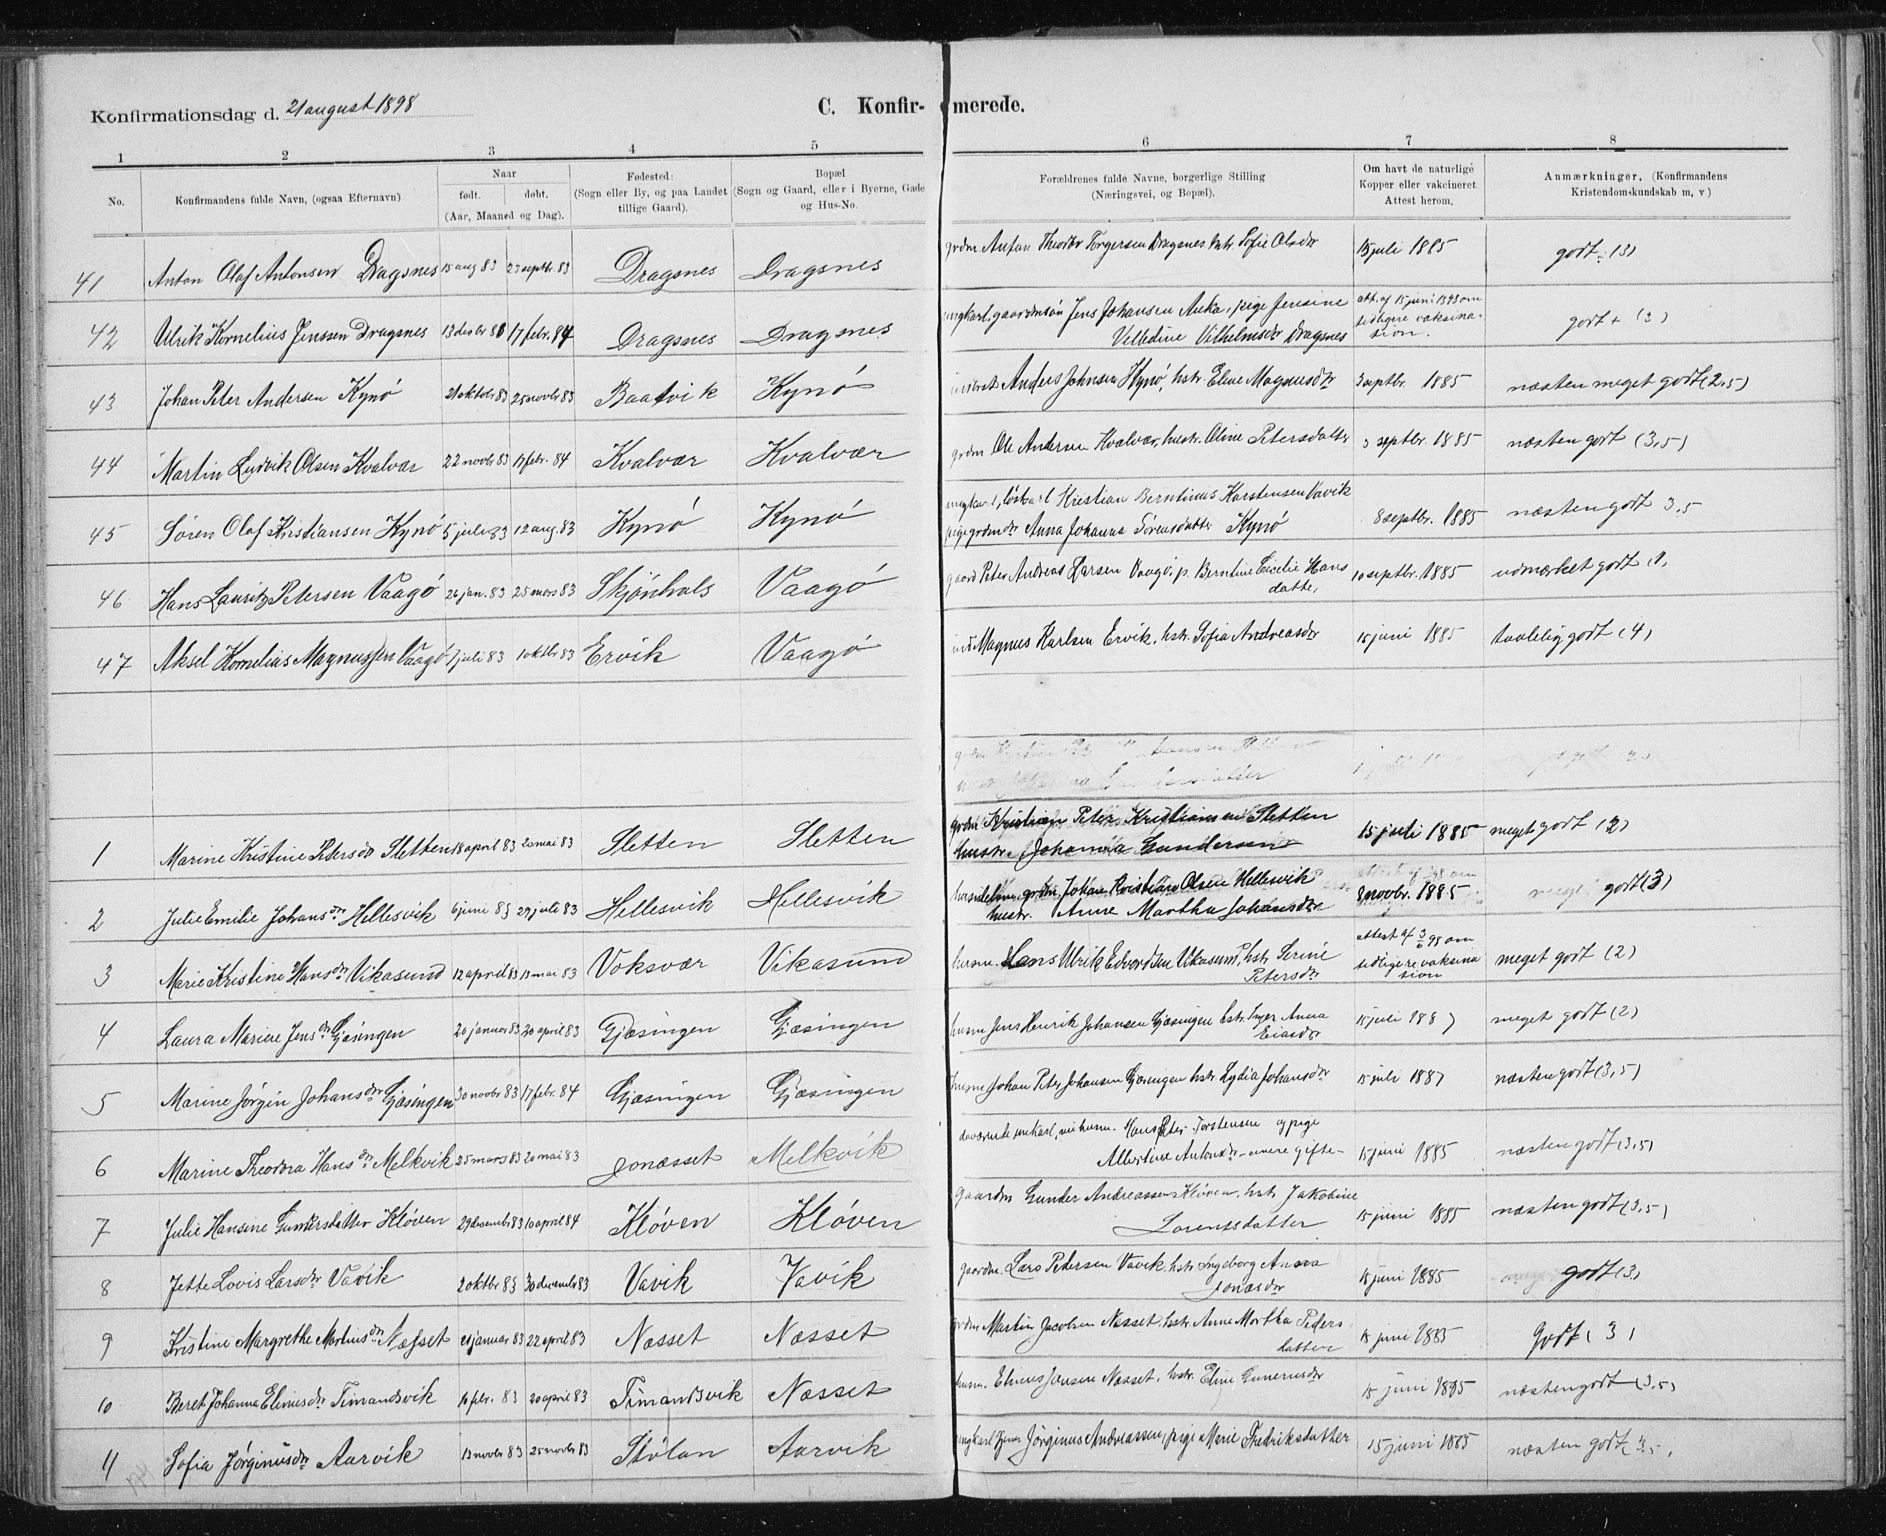 Konfirmationsdag d. 21 august 1898
C. Konfirmerede.
1 2 3 4 5 6 7 8
No.
Konfirmandens fulde Navn, (ogsaa Efternavn)
Naar
født. døbt.
(Aar, Maaned og Dag).
Fødested:
(Sogn eller By, og paa Landet
tillige Gaard).
Bopæl
(Sogn og Gaard, eller i Byerne, Gade
og Hus-No.
Forældrenes fulde Navne, borgerlige Stilling
(Næringsvei, og Bopæl).
Om havt de naturlige
Kopper eller vakcineret
Attest herom.
Anmærkninger. (Konfirmandens
Kristendomskundskab m, v)
41 Anton Olaf Antonsen Dragsnes 15 aug 83 23 septbr 83 Dragsnes Dragsnes grdm Anton Theodor Torgersen Dragsnes hstr Sofie Olsdr 15 juli 1885 godt (3)
42 Ulrik Kornelius Jenssen Dragsnes 13 desbr 17 febr. 84 Dragsnes Dragsnes ungkarl, gaardmsøn Jens Johansen Auka, pige Jensine
Velledine Vilhelmsdr Dragsnes att. af 15 juni 1898 om
tidligere vaksina-
sion. godt + (3)
43 Johan Peter Andersen Kynø 21 oktobr 83 25 novbr 83 Baatvik Kynø Anders Johnsen Kynø, hstr. Eline Magnusdr 3 septbr. 1885 næsten meget godt (2,5)
44 Martin Ludvik Olsen Kvalvær 22 novbr 83 17 febr. 84 Kvalvær Kvalvær grdm Ole Andersen Kvalvær, hustr. Oline Petersdatter 3 septbr. 1885 næsten godt (3,5)
45 Søren Olaf Kristiansen Kynø 5 juli 83 12 aug. 83 Kynø Kynø ungkarl, løskarl Kristian Berntinus Karstensen Vavik
pige grdmdr Anna Johanna Sørensdatter Kynø 8 septbr. 1885 næsten godt 3,5
46 Hans Lauritz Petersen Vaagø 26 jan. 83 25 mars 83 Skjønhals Vaagø gaard Peter Andreas Larsen Vaagø, p. Berntine Cecelie Hans
datter 10 septbr. 1885 udmærket godt (1)
47 Aksel Kornelius Magnussen Vaagø 7 juli 83 1 oktbr 83 Ervik Vaagø ind. Magnus Karlsen Ervik, hstr. Sofia Andreasdr 15 juni 1885 taalelig godt (4)
1 Marine Kristine Petersdr Sletten 18 april 83 20 mai 83 Sletten Sletten grdm Kristian Peter Kristiansen Sletten
hustr. Johanna Gundersen 15 juli 1885 meget godt (2)
2 Julie Emilie Johansdr Hellesvik 6 juni 83 29 juli 83 Hellesvik Hellesvik grdm. Johan Kristian Olsen Hellesvik
hustr. Anne Martha Johansdr 8 novbr. 1885 godt (3)
3 Marie Kristine Hansdr Vikasund 12 april 83 13 mai 83 Voksvær Vikasund husm. Hans Ulrik Edvardsen Vikasund, hstr Serine
Petersdr attest af 3/6 98 om
tidligere vaksina
sion meget godt (2)
4 Laura Marine Jensdr Gjæsingen 20 januar 83 20 april 83 Gjæsingen Gjæsingen husm Jens Henrik Johansen Gjæsingen hstr Inger Anna
Eliasdr 15 juli 1887 meget godt (2)
5 Marine Jørgin Johansdr Gjæsingen 30 novbr 83 17 febr. 84 Gjæsingen Gjæsingen husm Johan Peter Johansen Gjæsingen hstr Lydia Johansdr 15 juli 1887 næsten godt (3,5)
6 Marine Theodora Hansdr Melkvik 25 mars 83 20 mai 83 Jonæsset Melkvik daværende unkarl, nu husm. Hans Peter Torstensen og pige
Albertine Antonsdr – senere gifte – 15 juni 1885 næsten godt (3,5)
7 Julie Hansine Gundersdatter Kløven 29 desembr 83 10 april 84 Kløven Kløven gaardm Gunder Andreassen Kløven, hstr Jakobine
Lorentsdatter 15 juni 1885 næsten godt (3,5)
8 Jette Lovis Larsdr Vavik 2 oktbr 83 30 decembr 83 Vavik Vavik gaardm. Lars Petersen Vavik hstr Ingeborg Anna
Jonasdr 15 juni 1885 godt (3)
9 Kristine Margrethe Martinsdr Næsset 21 januar 83 22 april 83 Næsset Næsset grdm Martin Jacobsen Næsset, hstr Anne Martha Peders
datter 15 juni 1885 Godt (3)
10 Beret Johanna Elinusdr Timandsvik 10 febr. 83 20 april 83 Timandsvik Næsset husm. Elinus Jensen Næsset, hstr. Eline Gunerusdr 15 juni 1885 næsten godt (3,5)
11 Sofia Jørginusdr Aarvik 13 novbr 83 25 novbr 83 Stølan Aarvik ungkarl Jørginus Andreassen, pige Marie Fredriksdatter 15 juni 1885 næsten godt (3,5)